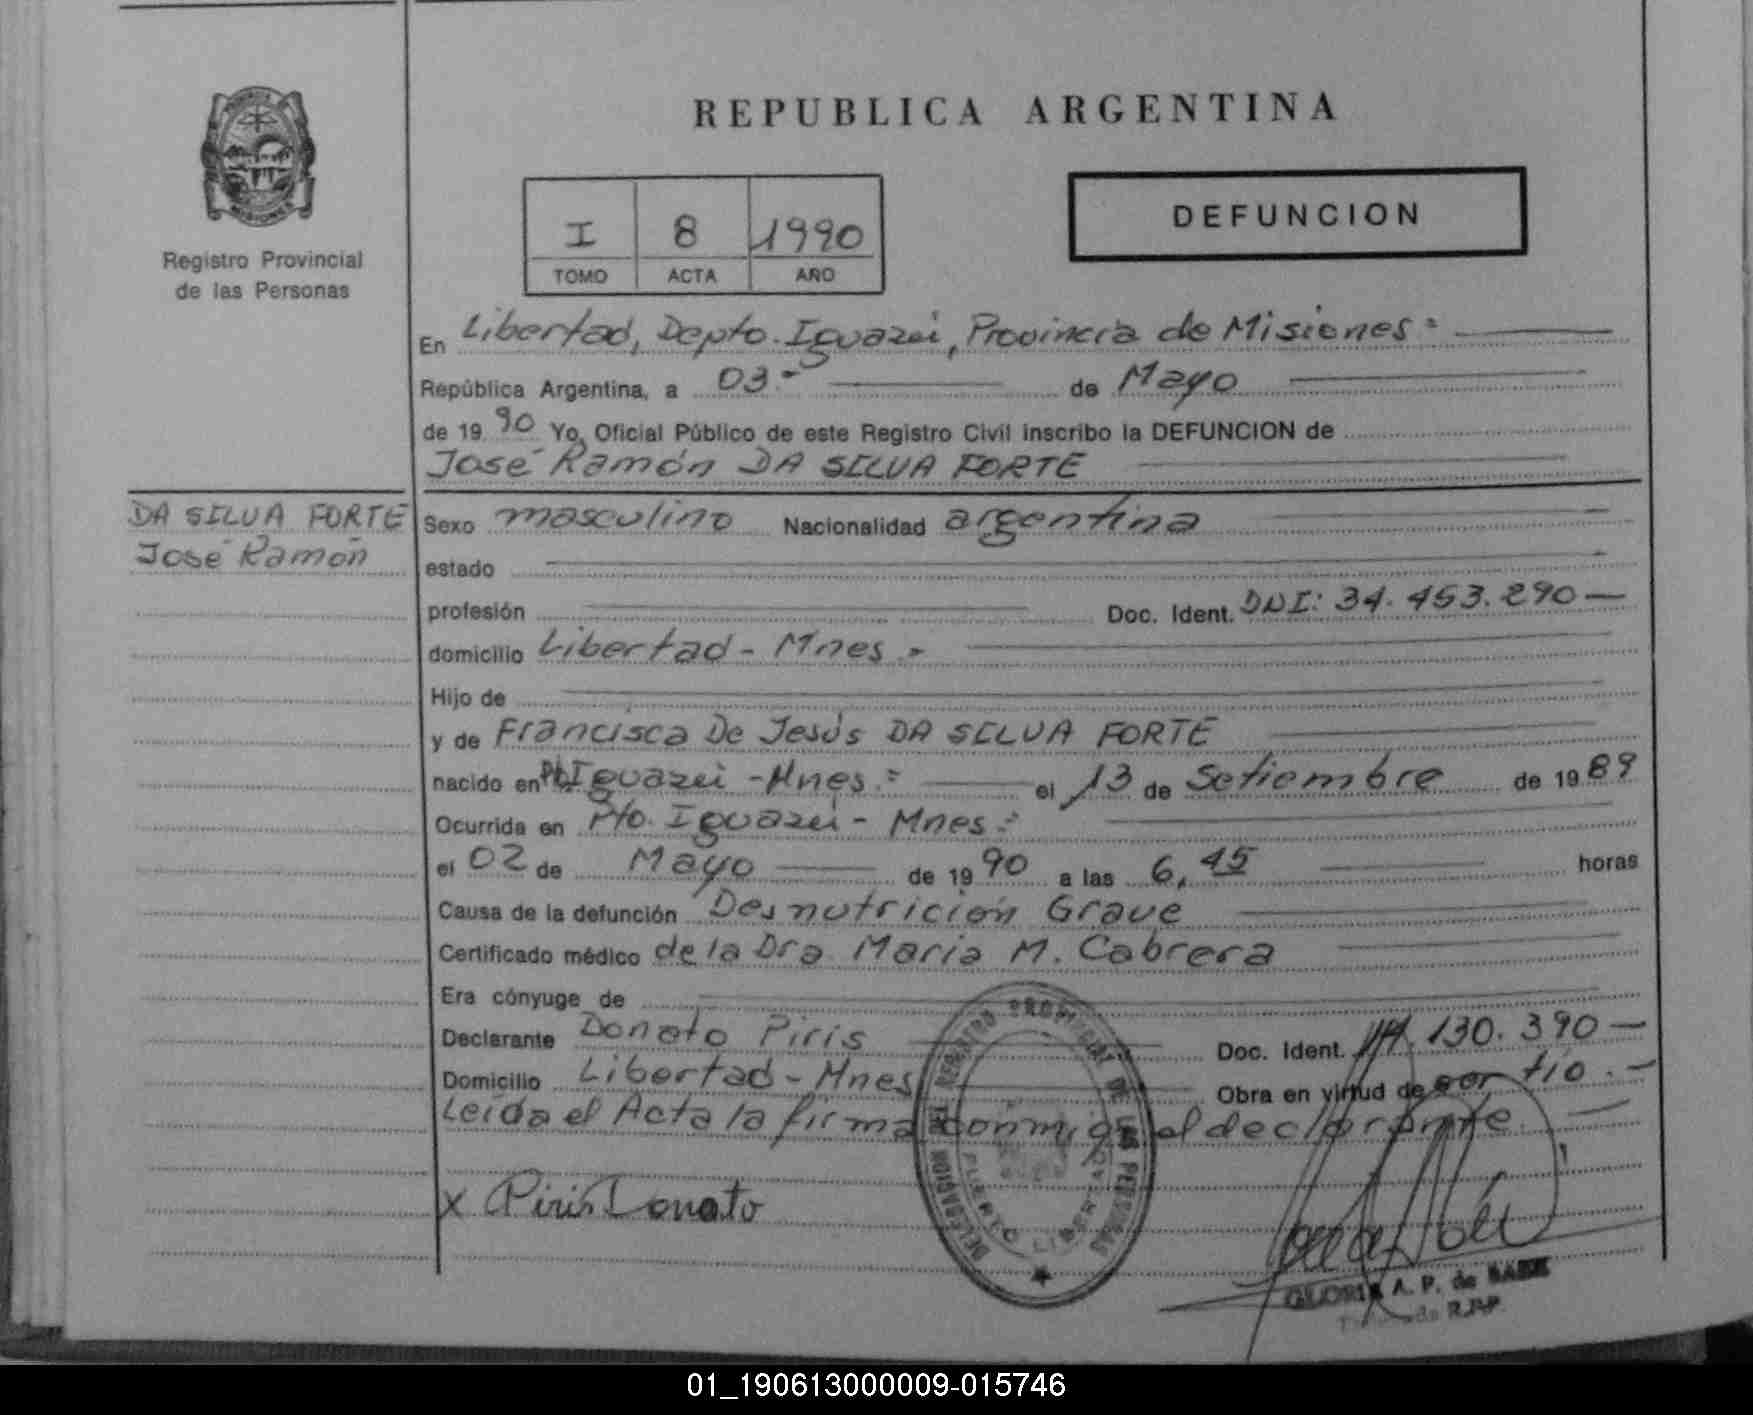 REPUBLICA ARGENTINA
PROVINCIA
MISIONES
Registro Provincial
de las Personas
I 8 1990
TOMO ACTA AÑO
DEFUNCION
En Libertad, Depto. Iguazú, Provincia de Misiones=
República Argentina, a 03.- de Mayo
de 19 90 Yo, Oficial Público de este Registro Civil inscribo la DEFUNCION de
José Ramón DA SILVA FORTE
DA SILVA FORTE
José Ramón
Sexo masculino Nacionalidad argentina
estado
profesión Doc. Ident. DNI: 34.453.290—
domicilio Libertad - Mnes.-
Hijo de
y de Francisca De Jesús DA SILVA FORTE
nacido en Pto. Iguazú - Mnes.= el 13 de Setiembre de 19 89
Ocurrida en Pto. Iguazú - Mnes.=
el 02 de Mayo de 19 90 a las 6,45 horas
Causa de la defunción Desnutrición Grave
Certificado médico de la Dra. Maria M. Cabrera
Era cónyuge de
Declarante Donato Piris Doc. Ident. 130.390—
Domicilio Libertad - Mnes Obra en virtud de ser tio.-
Leída el Acta la firma conmigo el declarante
x Piris Donato
DELEGACION DEL REGISTRO PROVINCIAL DE LAS PERSONAS
PUERTO LIBERTAD
GLORIA A. P. de
01_190613000009-015746